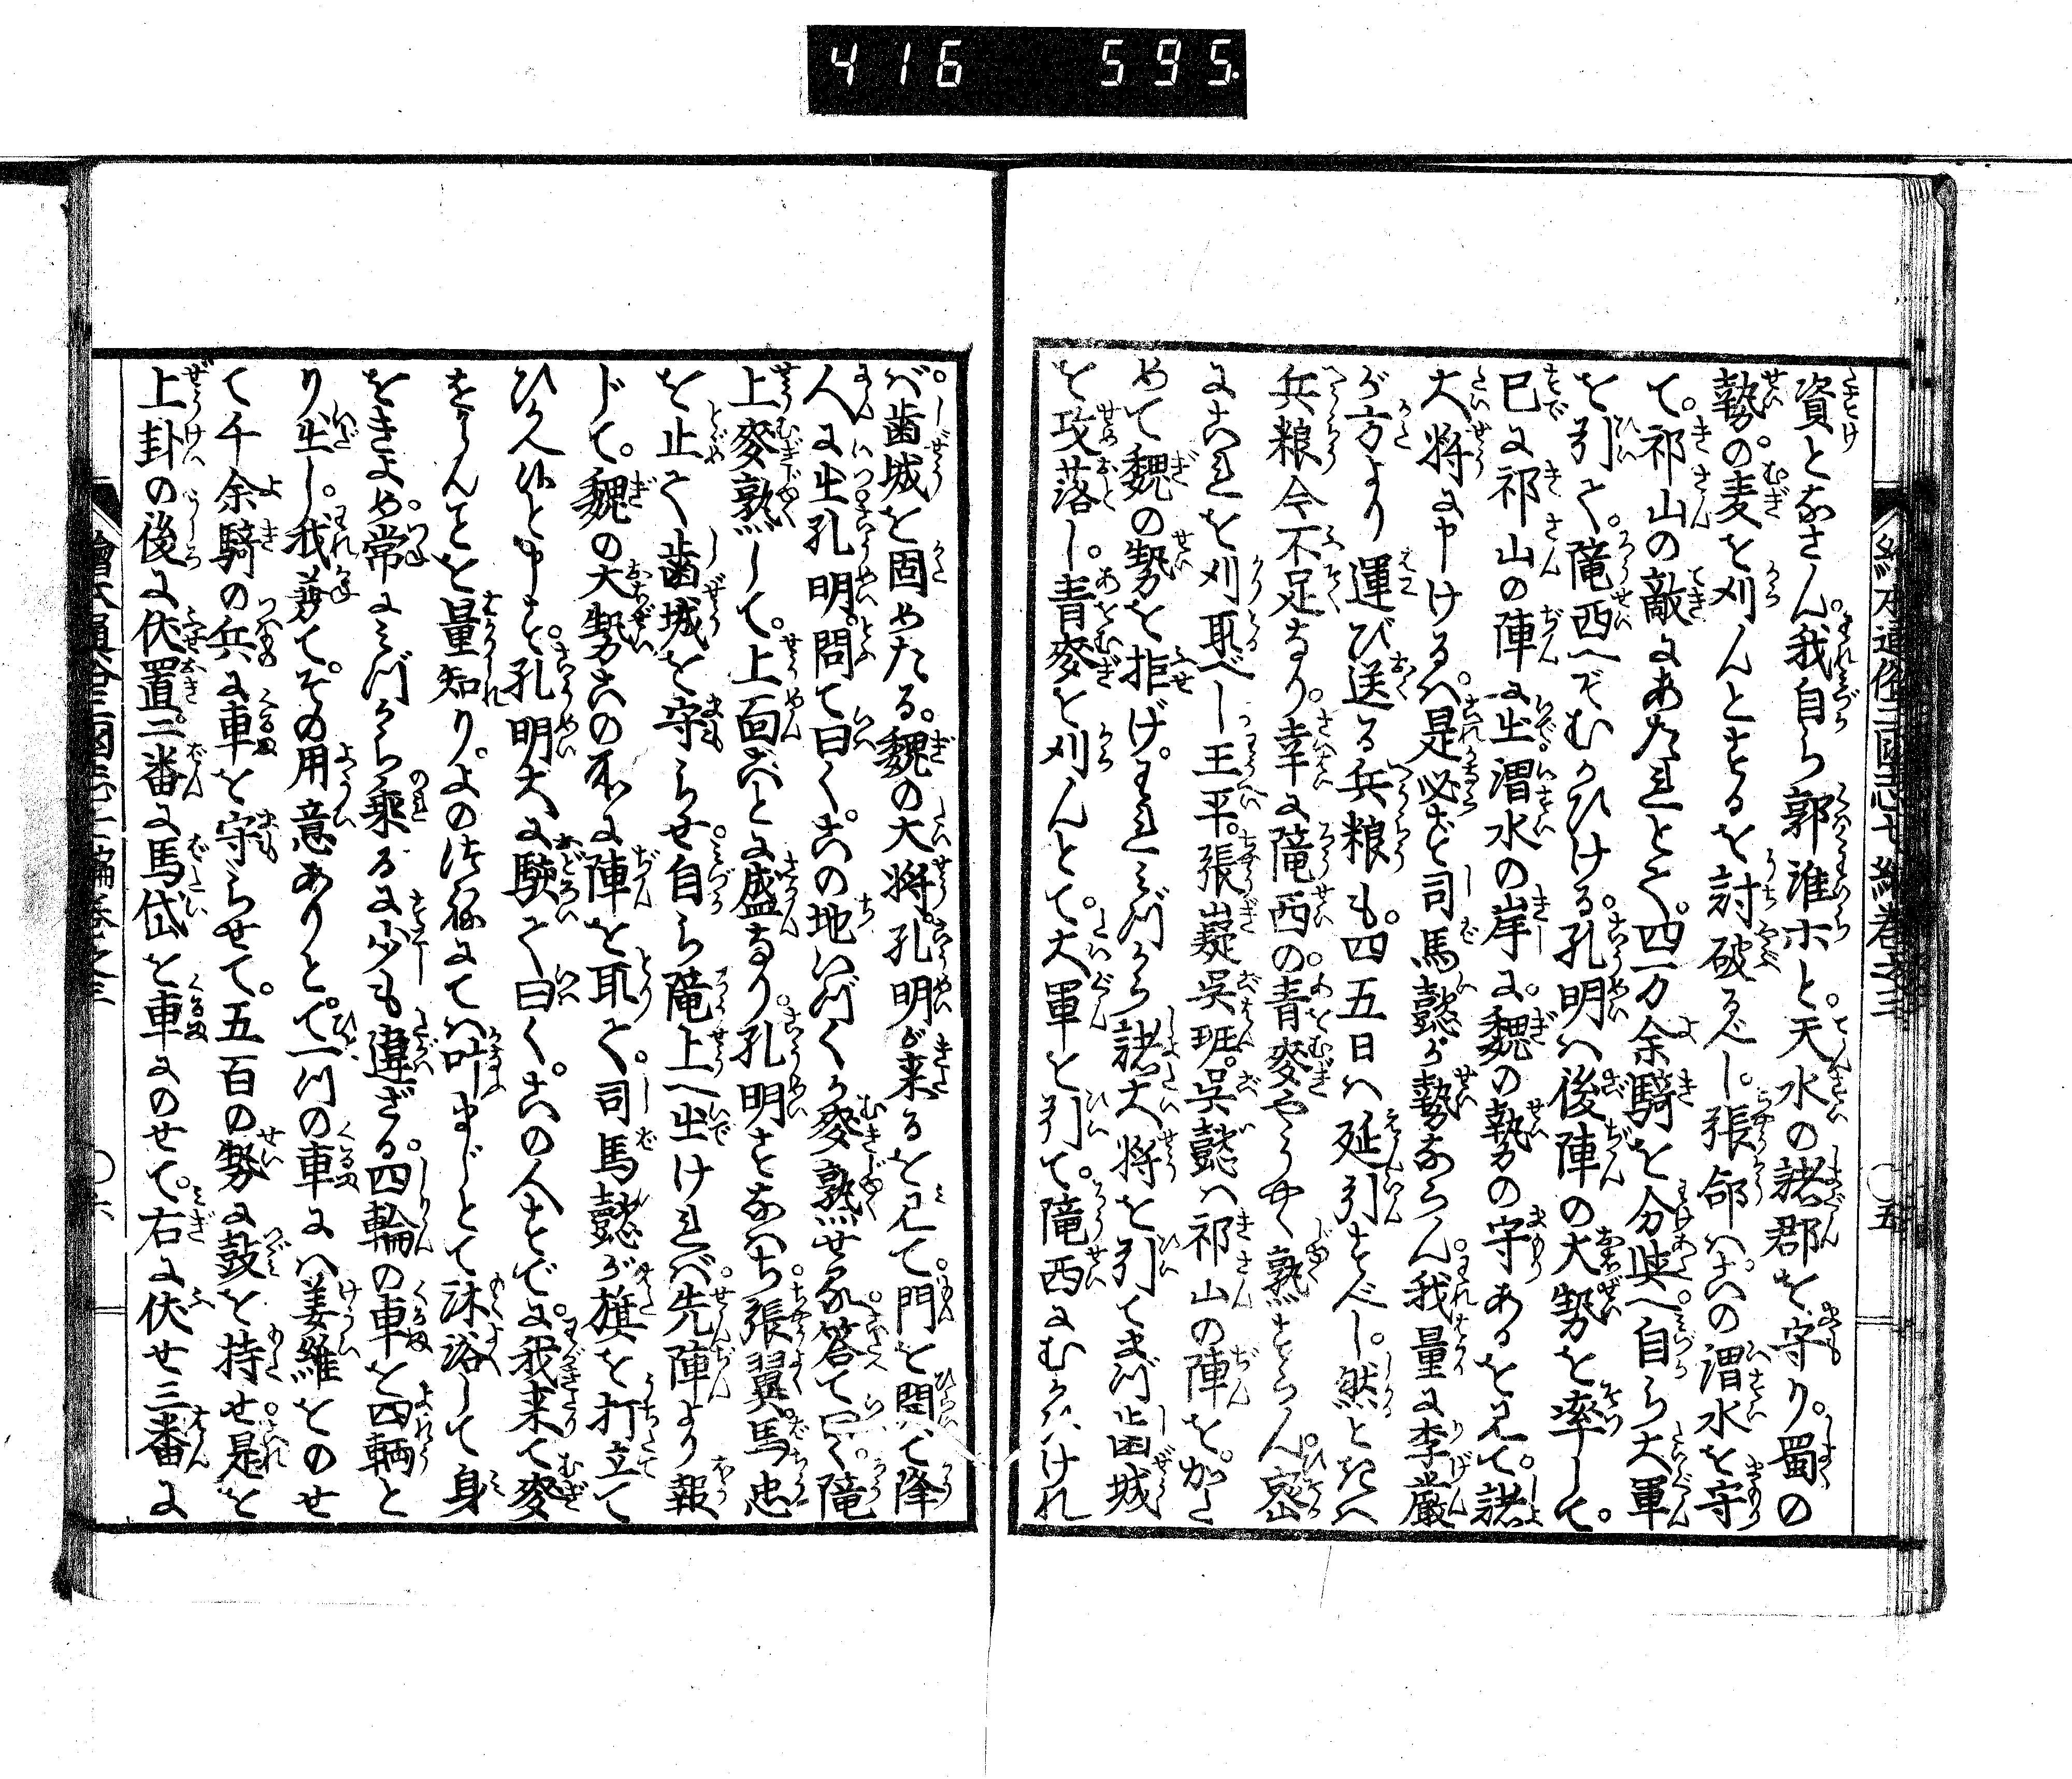 416 595.
資となさん。我自ら郭淮ホと。天水の諸郡を守り。蜀の
勢の麦を刈んとするを討破るべし。張郃ハ此の渭水を守
て。祁山の敵にあたれとて。四万余騎を分与へ。自ら大軍
を引て。隴西へぞむかひける。孔明ハ後陣の大勢を率して。
已に祁山の陣に出。渭水の岸に。魏の勢の守あるを見て。諸
大将に申けるハ。是必ず司馬懿が勢ならん。我量に李嚴
が方より運び送る兵粮も。四五日ハ延引すべし。然と
兵粮今不足なり。幸に隴西の。青麥やうやく熟すらん。密
に此れを刈取べし王平。張嶷呉班。呉懿ハ祁山の陣を。かた
めて魏の勢を拒げ。われミづから諸大将を引てまづ歯城
を攻落し。青麥を刈んとて。大軍を引て。隴西にむかハけれ
繪本通俗三國志七編巻之三 〇五
ば歯城を固めたる。魏の大将。孔明が来るを見て。門を開いて降
人に出孔明。問て曰く。此の地いづくか麥熟せる。答て曰く隴
上麥熟して。上面ことに盛なり。孔明すなハち張翼馬忠
を止て歯城を守らせ。自ら隴上へ出けれバ。先陣より報
じて。魏の大勢此の所に陣を取て。司馬懿が旗を打立て
ひかへ候と申す。孔明大に驚て曰く。此の人すでに。我来て麥
をからんことを量知り。よのつねにてハ叶まじとて沐浴して身
をきよめ。常にミづから乗るに少も違ざる。四輪の車を四輌と
り出し。我兼て。その用意ありとて。一ツの車にハ姜維をのせ
て千余騎の兵に車を守らせて。五百の勢に鼓を持せ是を
上卦の後に伏置。二番に馬岱を車にのせて。右に伏せ三番に
繪本通俗三國志七編巻之三 〇六